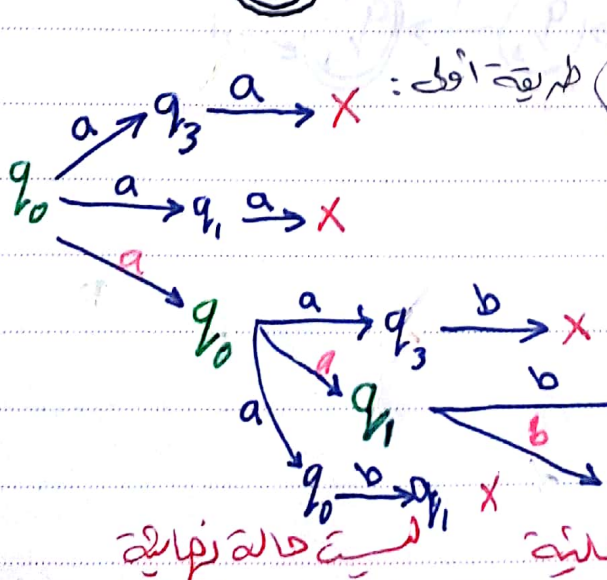 طريقة أولى :
a q3 a X
q0 a q1 a X
a
q0 a q3 b X
a q1 b
b
a q0 b q1 X
ليست حالة نهائية